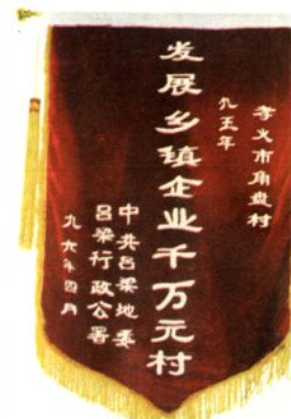 孝义市角盘村
九五年
发展乡镇企业千万元村
中共吕梁地委
吕梁行政公署
九六年四月